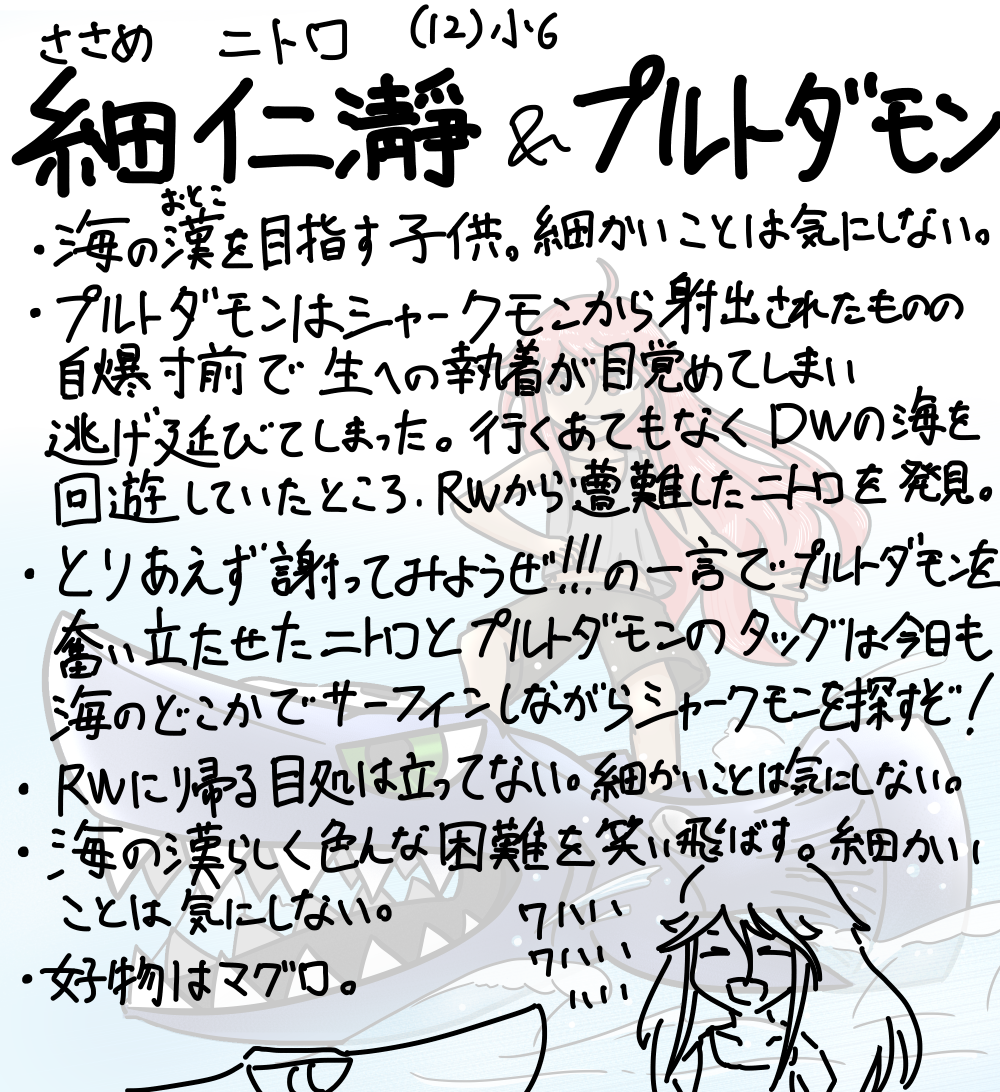 ささめ ニトロ (12)小6
細仁瀞 & プルトダモン
おとこ
・海の漢を目指す子供。細かいことは気にしない。
・プルトダモンはシャークモンから射出されたものの
自爆寸前で生への執着が目覚めてしまい
逃げ延びてしまった。行くあてもなくDWの海を
回遊していたところ、RWから遭難したニトロを発見。
・とりあえず謝ってみようぜ!!!の一言でプルトダモンを
奮い立たせたニトロとプルトダモンのタッグは今日も
海のどこかでサーフィンしながらシャークモンを探すぞ!
・RWに帰る目処は立ってない。細かいことは気にしない。
・海の漢らしく色んな困難を笑い飛ばす。細かい
ことは気にしない。
・好物はマグロ。
ワハハハ
ワハハハ
ハハハ